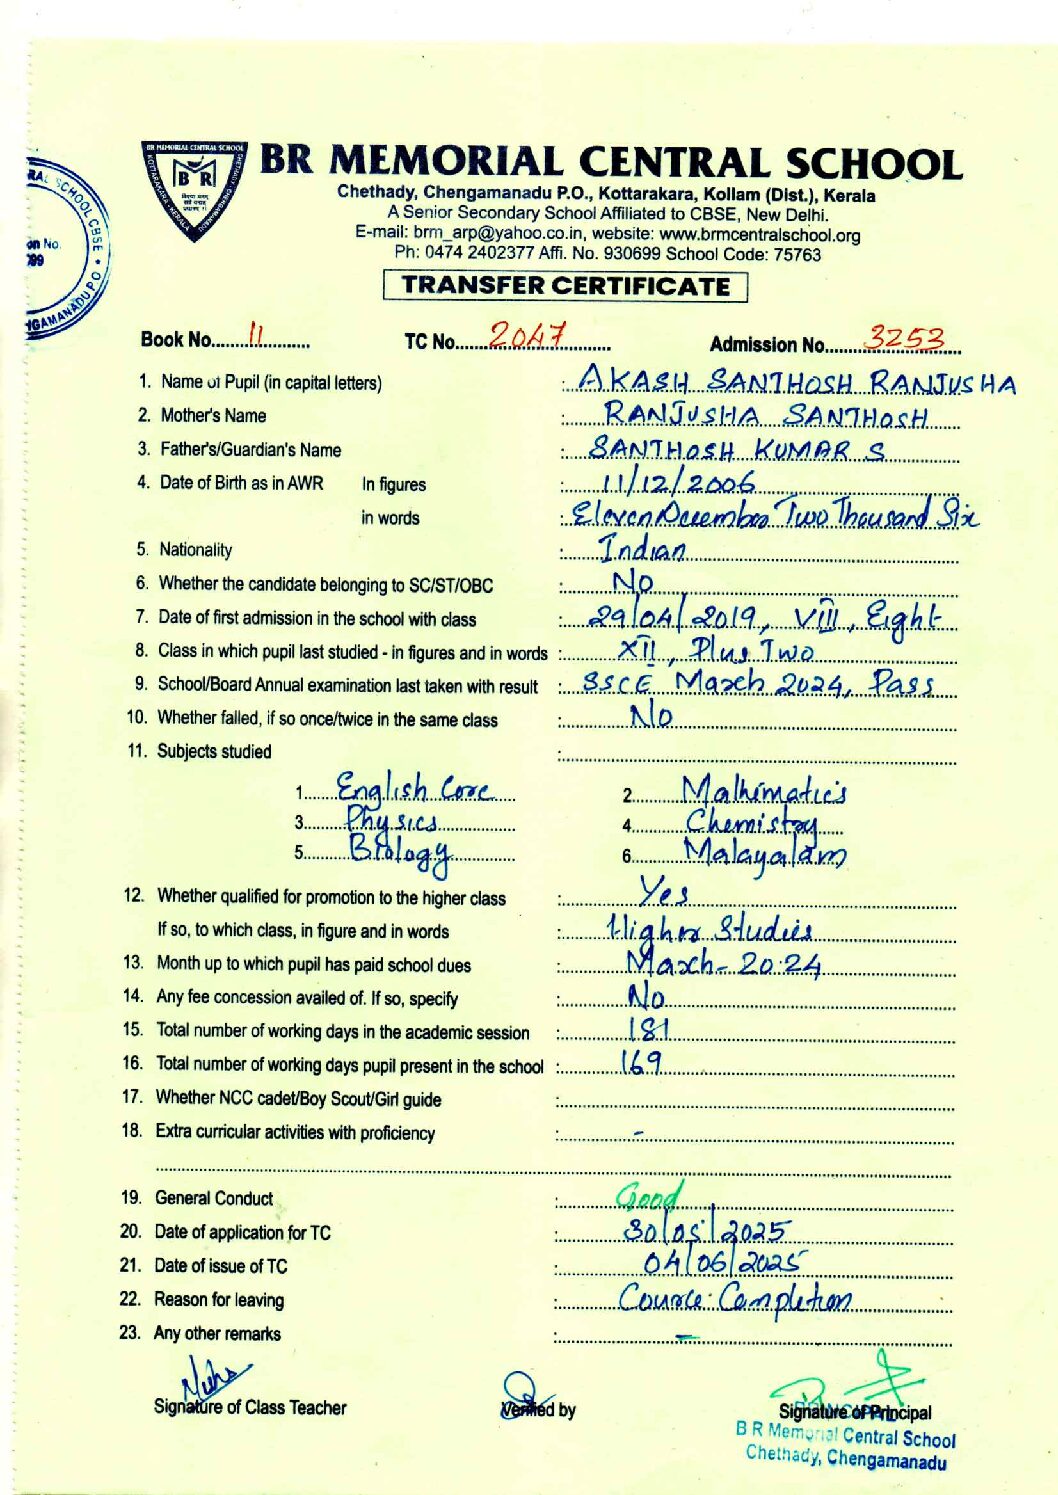 BR MEMORIAL CENTRAL SCHOOL
Chethady, Chengamanadu P.O., Kottarakara, Kollam (Dist.), Kerala
A Senior Secondary School Affiliated to CBSE, New Delhi.
E-mail: brm_arp@yahoo.co.in, website: www.brmcentralschool.org
Ph: 0474 2402377 Affi. No. 930699 School Code: 75763
TRANSFER CERTIFICATE
BR MEMORIAL CENTRAL SCHOOL
KOTTARAKARA - KERALA
CHETHADY - CHENGAMANADU
B R
RAL SCHOOL CBSE • NGAMANADU P.O
on No.
399
Book No. 11 TC No. 2047 Admission No. 3253
1. Name of Pupil (in capital letters) : AKASH SANTHOSH RANJUSHA
2. Mother's Name : RANJUSHA SANTHOSH
3. Father's/Guardian's Name : SANTHOSH KUMAR S
4. Date of Birth as in AWR In figures : 11/12/2006
in words : Eleven December Two Thousand Six
5. Nationality : Indian
6. Whether the candidate belonging to SC/ST/OBC : No
7. Date of first admission in the school with class : 29/04/2019, VIII, Eight
8. Class in which pupil last studied - in figures and in words : XII, Plus Two
9. School/Board Annual examination last taken with result : SSCE March 2024, Pass
10. Whether failed, if so once/twice in the same class : No
11. Subjects studied :
1. English Core 2. Mathimatics
3. Physics 4. Chemistry
5. Biology 6. Malayalam
12. Whether qualified for promotion to the higher class : Yes
If so, to which class, in figure and in words : Higher Studies
13. Month up to which pupil has paid school dues : March-2024
14. Any fee concession availed of. If so, specify : No
15. Total number of working days in the academic session : 181
16. Total number of working days pupil present in the school : 169
17. Whether NCC cadet/Boy Scout/Girl guide :
18. Extra curricular activities with proficiency : -
19. General Conduct : Good
20. Date of application for TC : 30/05/2025
21. Date of issue of TC : 04/06/2025
22. Reason for leaving : Course Completion
23. Any other remarks : -
Signature of Class Teacher Verified by Signature of Principal
PRINCIPAL
B R Memorial Central School
Chethady, Chengamanadu